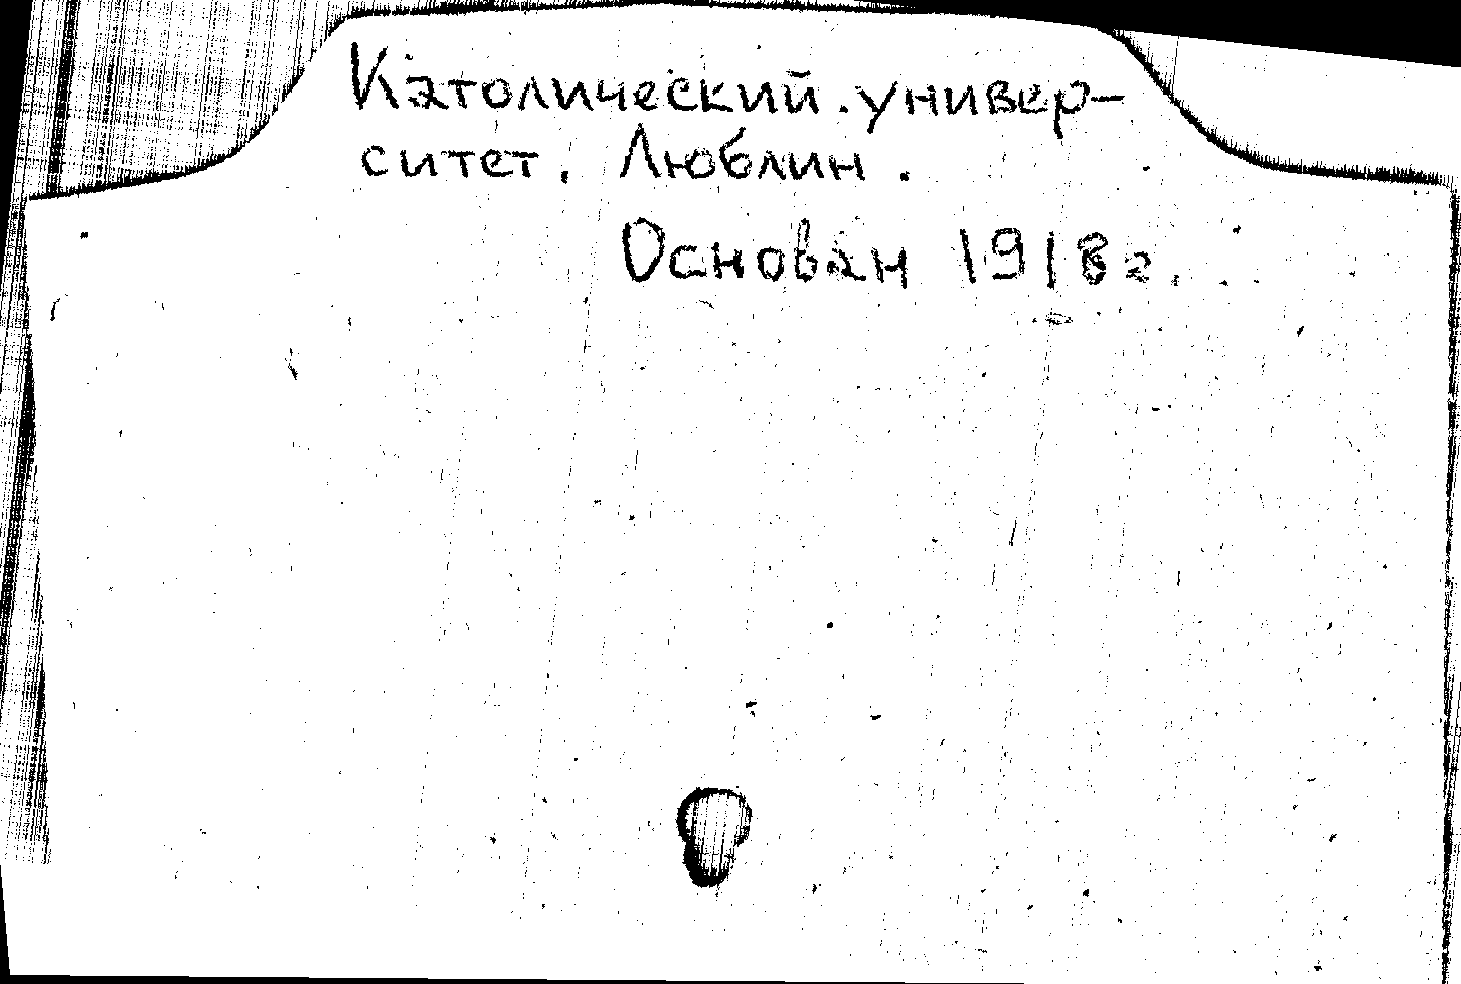 Католический универ-
ситет. Люблин.
Основан 1918 г.